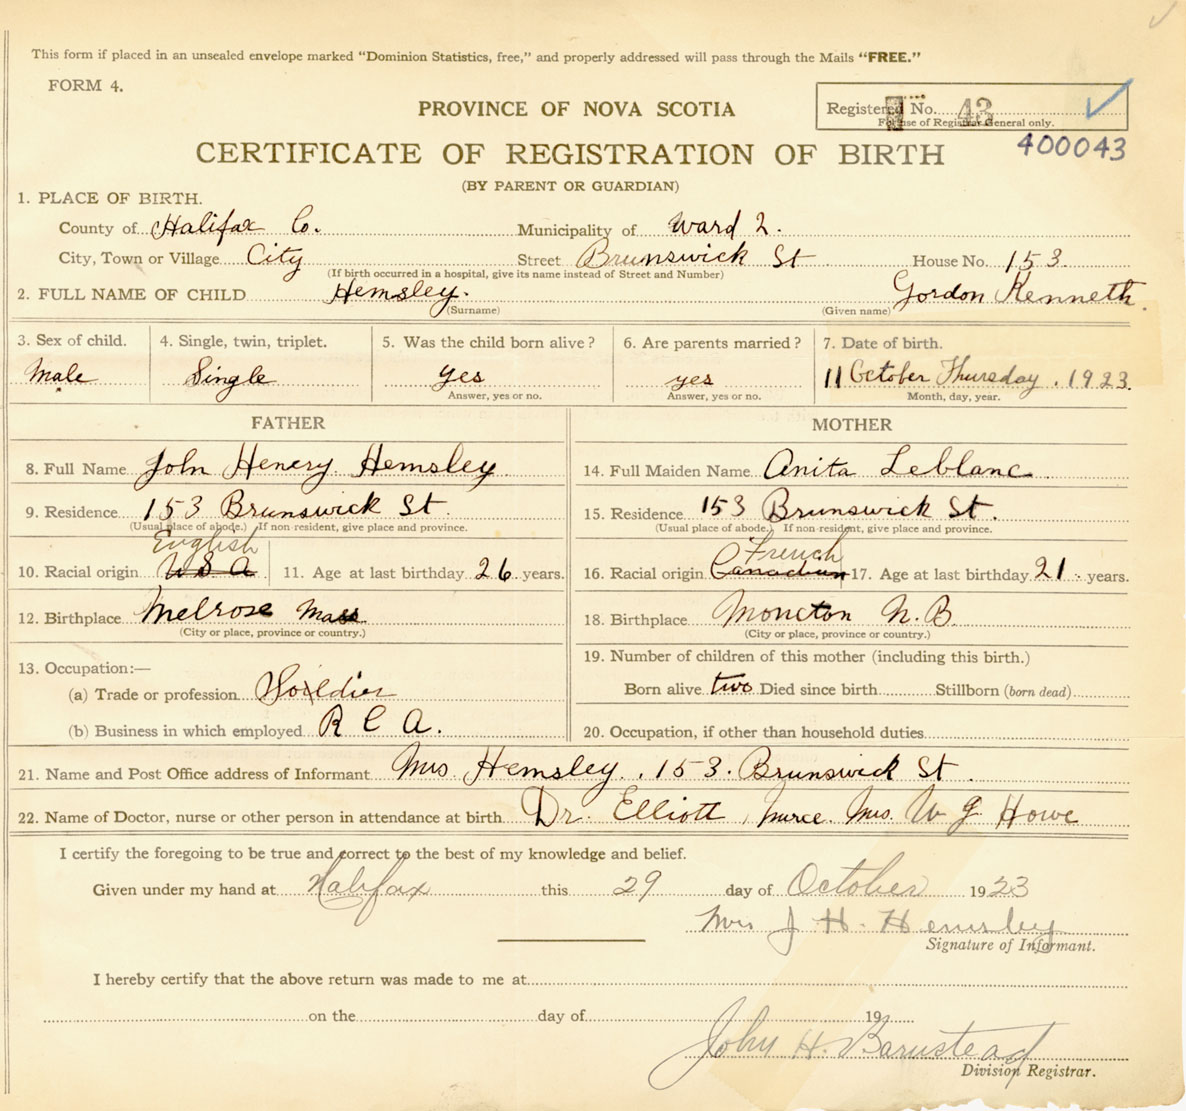 This form if placed in an unsealed envelope marked "Dominion Statistics, free," and properly addressed will pass through the Mails "FREE."
FORM 4.
PROVINCE OF NOVA SCOTIA
Registered No. 43
For use of Registrar General only.
400043
CERTIFICATE OF REGISTRATION OF BIRTH
(BY PARENT OR GUARDIAN)
1. PLACE OF BIRTH.
County of Halifax Co. Municipality of Ward 2.
City, Town or Village City Street Brunswick St House No. 153
(If birth occurred in a hospital, give its name instead of Street and Number)
2. FULL NAME OF CHILD Hemsley. Gordon Kenneth
(Surname) (Given name)
3. Sex of child. 4. Single, twin, triplet. 5. Was the child born alive? 6. Are parents married? 7. Date of birth.
Male Single yes yes 11 October Thursday. 1923
Answer, yes or no. Answer, yes or no. Month, day, year.
FATHER MOTHER
8. Full Name John Henery Hemsley 14. Full Maiden Name Anita Leblanc
9. Residence 153 Brunswick St. 15. Residence 153 Brunswick St.
(Usual place of abode.) If non-resident, give place and province. (Usual place of abode.) If non-resident, give place and province.
English French
10. Racial origin U S A 11. Age at last birthday 26 years. 16. Racial origin Canadian 17. Age at last birthday 21 years.
12. Birthplace Melrose Mass 18. Birthplace Moncton N.B.
(City or place, province or country.) (City or place, province or country.)
13. Occupation:— 19. Number of children of this mother (including this birth.)
(a) Trade or profession Born alive two Died since birth Stillborn (born dead)
(b) Business in which employed R C A. 20. Occupation, if other than household duties
21. Name and Post Office address of Informant Mrs Hemsley. 153. Brunswick St.
22. Name of Doctor, nurse or other person in attendance at birth Dr. Elliott, Nurce. Mrs. W G. Howe
I certify the foregoing to be true and correct to the best of my knowledge and belief.
Given under my hand at Halifax this 29 day of October 1923
Mrs J H. Hemsley
Signature of Informant.
I hereby certify that the above return was made to me at
on the day of 19
John H. Barnstead
Division Registrar.